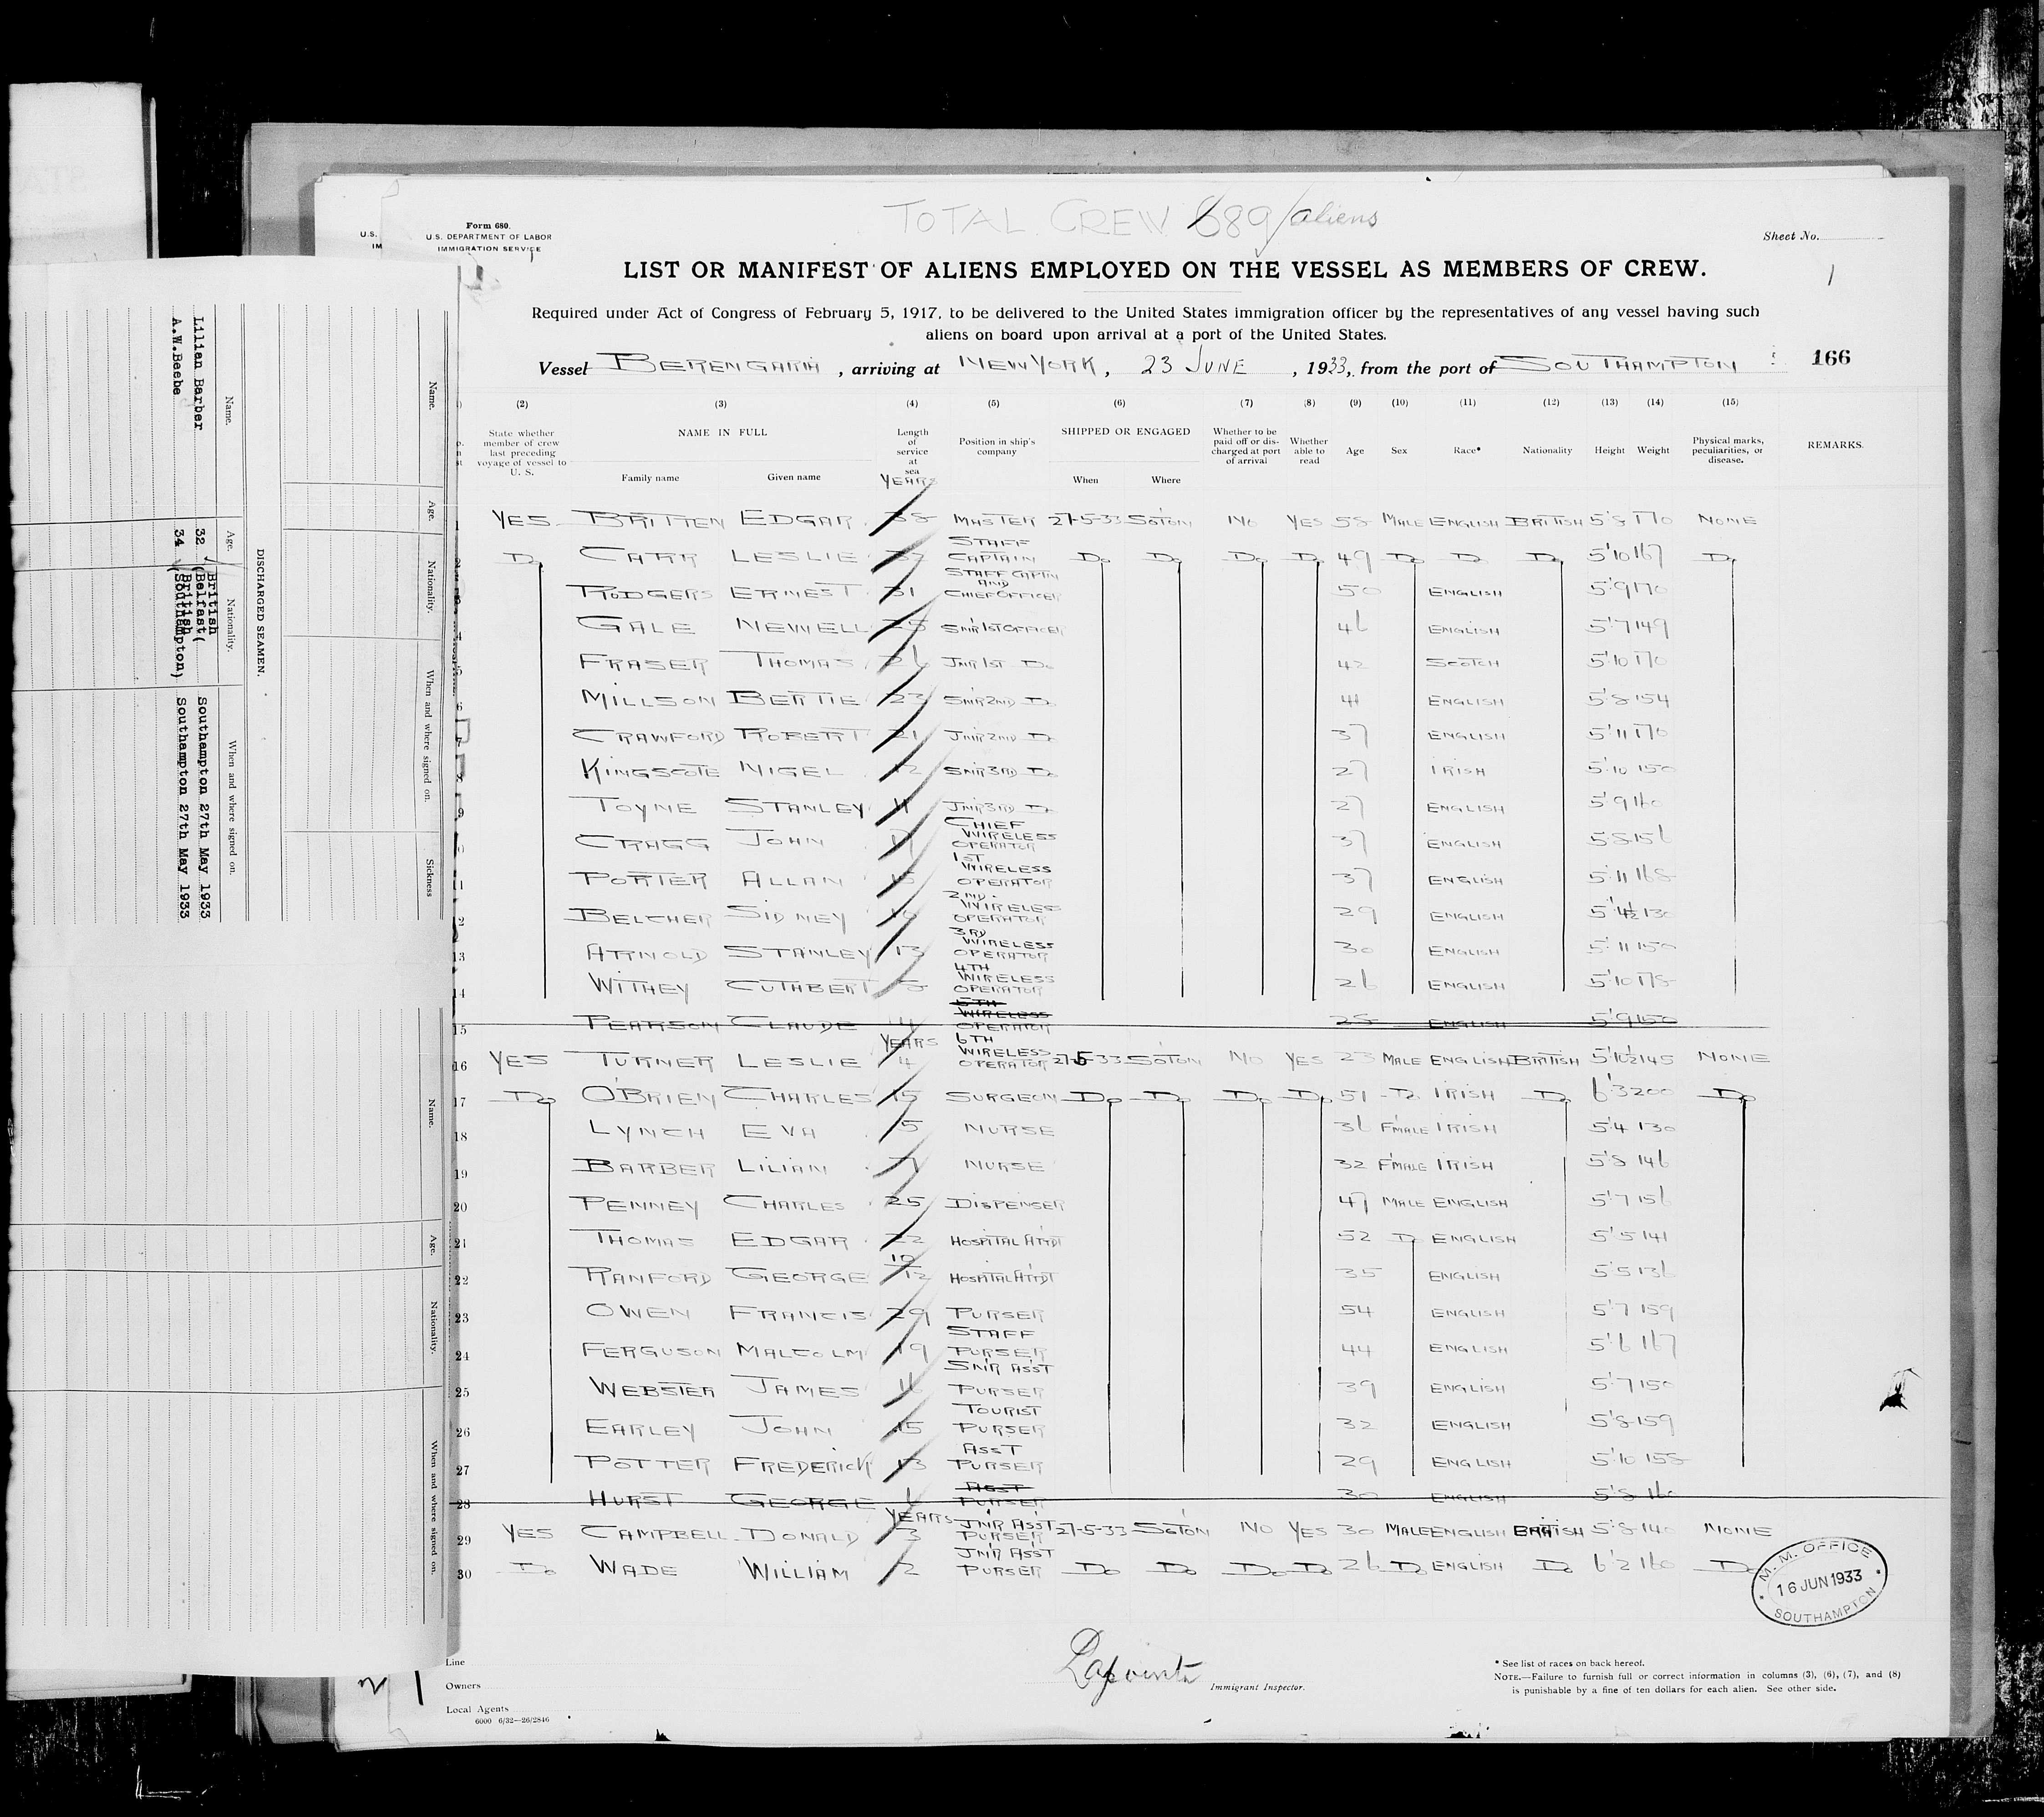 TOTAL CREW 689/aliens
Form 680.
U.S. DEPARTMENT OF LABOR
IMMIGRATION SERVICE
Sheet No.
1
LIST OR MANIFEST OF ALIENS EMPLOYED ON THE VESSEL AS MEMBERS OF CREW.
Required under Act of Congress of February 5, 1917, to be delivered to the United States immigration officer by the representatives of any vessel having such
aliens on board upon arrival at a port of the United States.
Vessel BERENGARIA, arriving at NEW YORK, 23 JUNE, 1933, from the port of SOUTHAMPTON 166
(2) (3) (4) (5) (6) (7) (8) (9) (10) (11) (12) (13) (14) (15)
State whether member of crew last preceding voyage of vessel to U. S.
NAME IN FULL
Family name Given name
Length of service at sea
YEARS
Position in ship's company
SHIPPED OR ENGAGED
When Where
Whether to be paid off or discharged at port of arrival
Whether able to read
Age Sex Race* Nationality Height Weight
Physical marks, peculiarities, or disease.
REMARKS.
1 YES BRITTEN EDGAR 38 MASTER 27-5-33 SOTON NO YES 58 MALE ENGLISH BRITISH 5'8 170 NONE
Do CARR LESLIE STAFF CAPTAIN Do Do Do Do 49 Do Do Do 5'10 167 Do
RODGERS ERNEST 31 STAFF CAPTN AND CHIEF OFFICER 50 ENGLISH 5'9 170
4 GALE NEWELL 25 SNR 1ST OFFICER 46 ENGLISH 5'7 149
5 FRASER THOMAS 26 JNR 1ST Do 42 SCOTCH 5'10 170
6 MILLSON BERTIE 23 SNR 2ND Do 41 ENGLISH 5'8 154
7 CRAWFORD ROBERT 21 JNR 2ND Do 37 ENGLISH 5'11 170
8 KINGSCOTE NIGEL 12 SNR 3RD Do 27 IRISH 5'10 150
9 TOYNE STANLEY 11 JNR 3RD Do 27 ENGLISH 5'9 160
CRAGG JOHN CHIEF WIRELESS OPERATOR 37 ENGLISH 5'8 156
11 PORTER ALLAN 15 1ST WIRELESS OPERATOR 37 ENGLISH 5'11 168
12 BELCHER SIDNEY 10 2ND. WIRELESS OPERATOR 29 ENGLISH 5'4½ 130
13 ARNOLD STANLEY 13 3RD WIRELESS OPERATOR 30 ENGLISH 5'11 150
14 WITHEY CUTHBERT 4TH WIRELESS OPERATOR 26 ENGLISH 5'10 178
15 PEARSON CLAUDE 4 5TH WIRELESS OPERATOR 25 ENGLISH 5'9 150
16 YES TURNER LESLIE YEARS 4 6TH WIRELESS OPERATOR 27-5-33 SOTON NO YES 23 MALE ENGLISH BRITISH 5'10½ 145 NONE
17 Do O'BRIEN CHARLES 15 SURGEON Do Do Do Do 51 Do IRISH Do 6'3 200 Do
18 LYNCH EVA 5 NURSE 36 F'MALE IRISH 5'4 130
19 BARBER LILIAN 7 NURSE 32 F'MALE IRISH 5'8 146
20 PENNEY CHARLES 25 DISPENSER 47 MALE ENGLISH 5'7 156
21 THOMAS EDGAR 22 HOSPITAL ATTDT 52 Do ENGLISH 5'5 141
22 RANFORD GEORGE 10/12 HOSPITAL ATTDT 35 ENGLISH 5'5 136
23 OWEN FRANCIS 29 PURSER 54 ENGLISH 5'7 159
24 FERGUSON MALCOLM 19 STAFF PURSER 44 ENGLISH 5'6 167
25 WEBSTER JAMES 16 SNR ASST PURSER 39 ENGLISH 5'7 150
26 EARLEY JOHN 15 TOURIST PURSER 32 ENGLISH 5'8 159
27 POTTER FREDERICK 13 ASST PURSER 29 ENGLISH 5'10 158
28 HURST GEORGE 6 ASST PURSER 30 ENGLISH 5'8 160
29 YES CAMPBELL DONALD YEARS 3 JNR ASST PURSER 27-5-33 SOTON NO YES 30 MALE ENGLISH BRITISH 5'8 140 NONE
30 Do WADE WILLIAM 2 JNR ASST PURSER Do Do Do Do 26 Do ENGLISH Do 6'2 160 Do
M. M. OFFICE
16 JUN 1933
SOUTHAMPTON
Line
Owners
Local Agents
6000 6/32—26/2846
Lapointe
Immigrant Inspector.
* See list of races on back hereof.
NOTE.—Failure to furnish full or correct information in columns (3), (6), (7), and (8)
is punishable by a fine of ten dollars for each alien. See other side.
DISCHARGED SEAMEN.
Name. Age. Nationality. When and where signed on.
Lilian Barber 32 British (Belfast( Southampton 27th May 1933
A.W.Beebe 34 British (Southampton) Southampton 27th May 1933
Name. Age. Nationality. When and where signed on. Sickness
Name. Age. Nationality. When and where signed on.
U.S.
IM